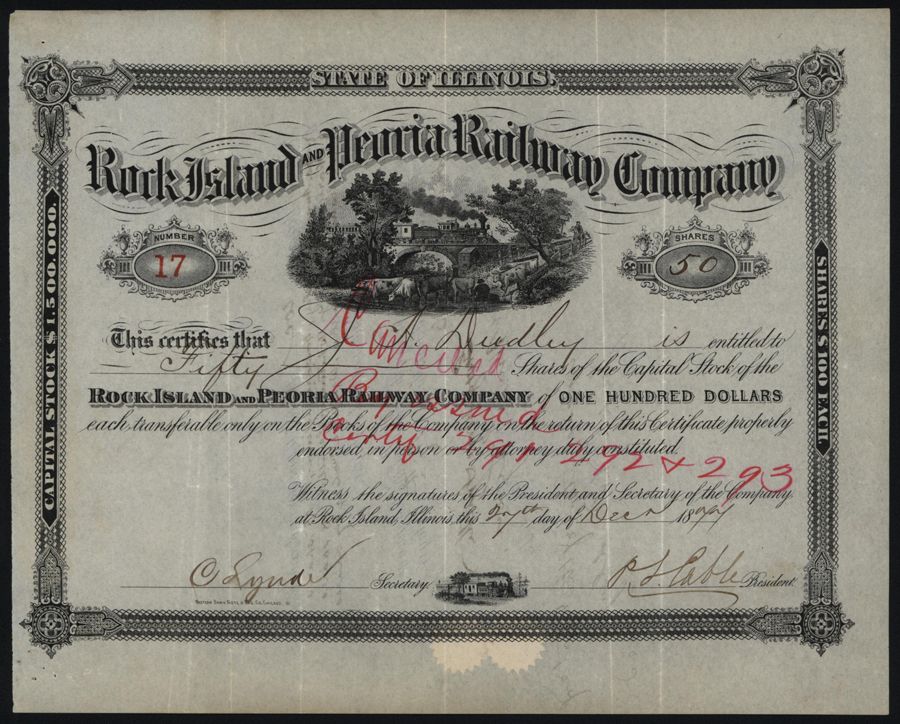 STATE OF ILLINOIS.
Rock Island AND Peoria Railway Company
NUMBER
17
SHARES
50
CAPITAL STOCK $1.500.000.
SHARES $100 EACH.
This certifies that J. A. Dudley is entitled to
Fifty Shares of the Capital Stock of the
ROCK ISLAND AND PEORIA RAILWAY COMPANY of ONE HUNDRED DOLLARS
each transferable only on the Books of the Company on the return of this Certificate properly
endorsed, in person or by attorney duly constituted.
Canceled
By issued
Certf 291 292 & 293
Witness the signatures of the President and Secretary of the Company.
at Rock Island, Illinois, this day of Decr 18
C Lynde Secretary
Western Bank Note & Eng. Co. Chicago.
President.